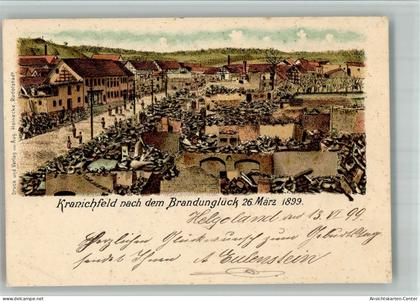 Kranichfeld nach dem Brandunglück 26. März 1899.
Druck und Verlag von Aug. Heinecke, Rudolstadt.
Helgoland den 13. VI 99
Herzlichen Glückwunsch zum Geburtstag
sendet Ihnen A Eulenstein
Ansichtskarten-Center